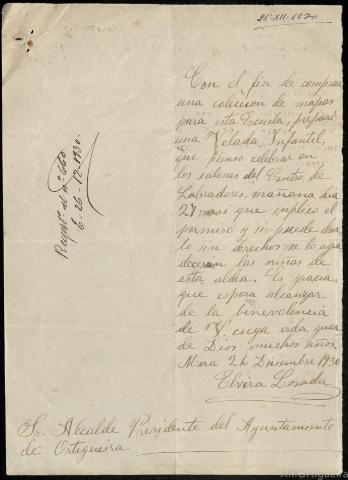 26-XII-1930
Con el fin de comprar
una colección de mapas
para esta Escuela, preparé
una Velada Infantil,
que pienso celebrar en
los salones del Centro de
Labradores, mañana día
27; así que suplico el
permiso y si puede dar
lo sin derechos se lo agra
decerán las niñas de
esta aldea. Es gracia
que espera alcanzar
de la benevolencia
de V. cuya vida guar
de Dios muchos años.
Mera 26 Diciembre 1930
Elvira Losada
Sr. Alcalde Presidente del Ayuntamiento
de Ortigueira.
Regdº. al nº. 660
26-12-1930.
AMOrtigueira